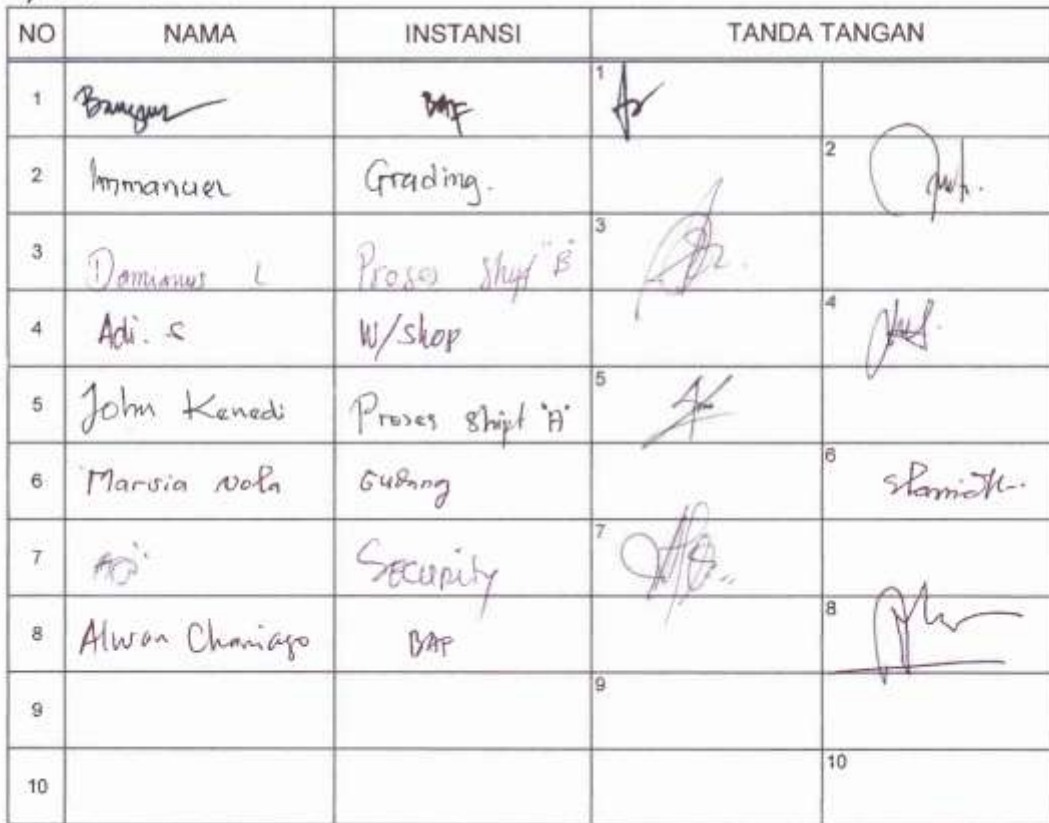 NO NAMA INSTANSI TANDA TANGAN
1 1
2 Immanuel Grading. 2
3 Damianus L Proses Shift "B" 3
4 Adi. S W/Shop 4
5 John Kenedi Proses Shipt "A" 5
6 Marsia Nola Gudang 6
7 Security 7
8 Alwan Chaniago BAP 8
9 9
10 10